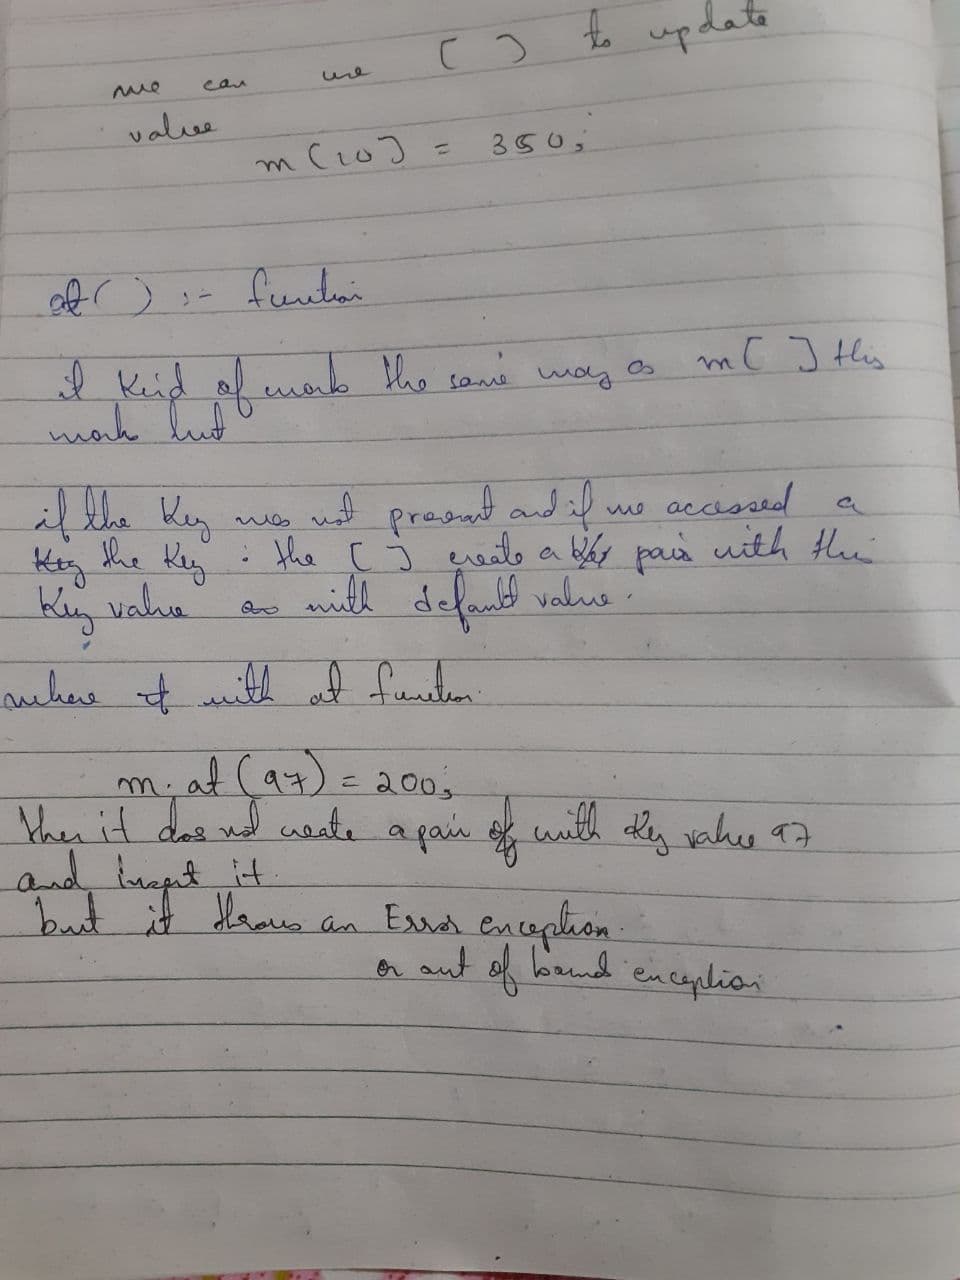 we can use [ ] to update
value
m[10] = 350;
at( ) :- function
it kind of work the same way as m[ ] this
work but
if the key was not present and if we accessed a
key the key : the [ ] create a pair with this
key value as with default value.
where if with at function.
m.at(97) = 200;
then it does not create a pair of with key value 97
and insert it.
but it throws an Error exception.
or out of bound exception